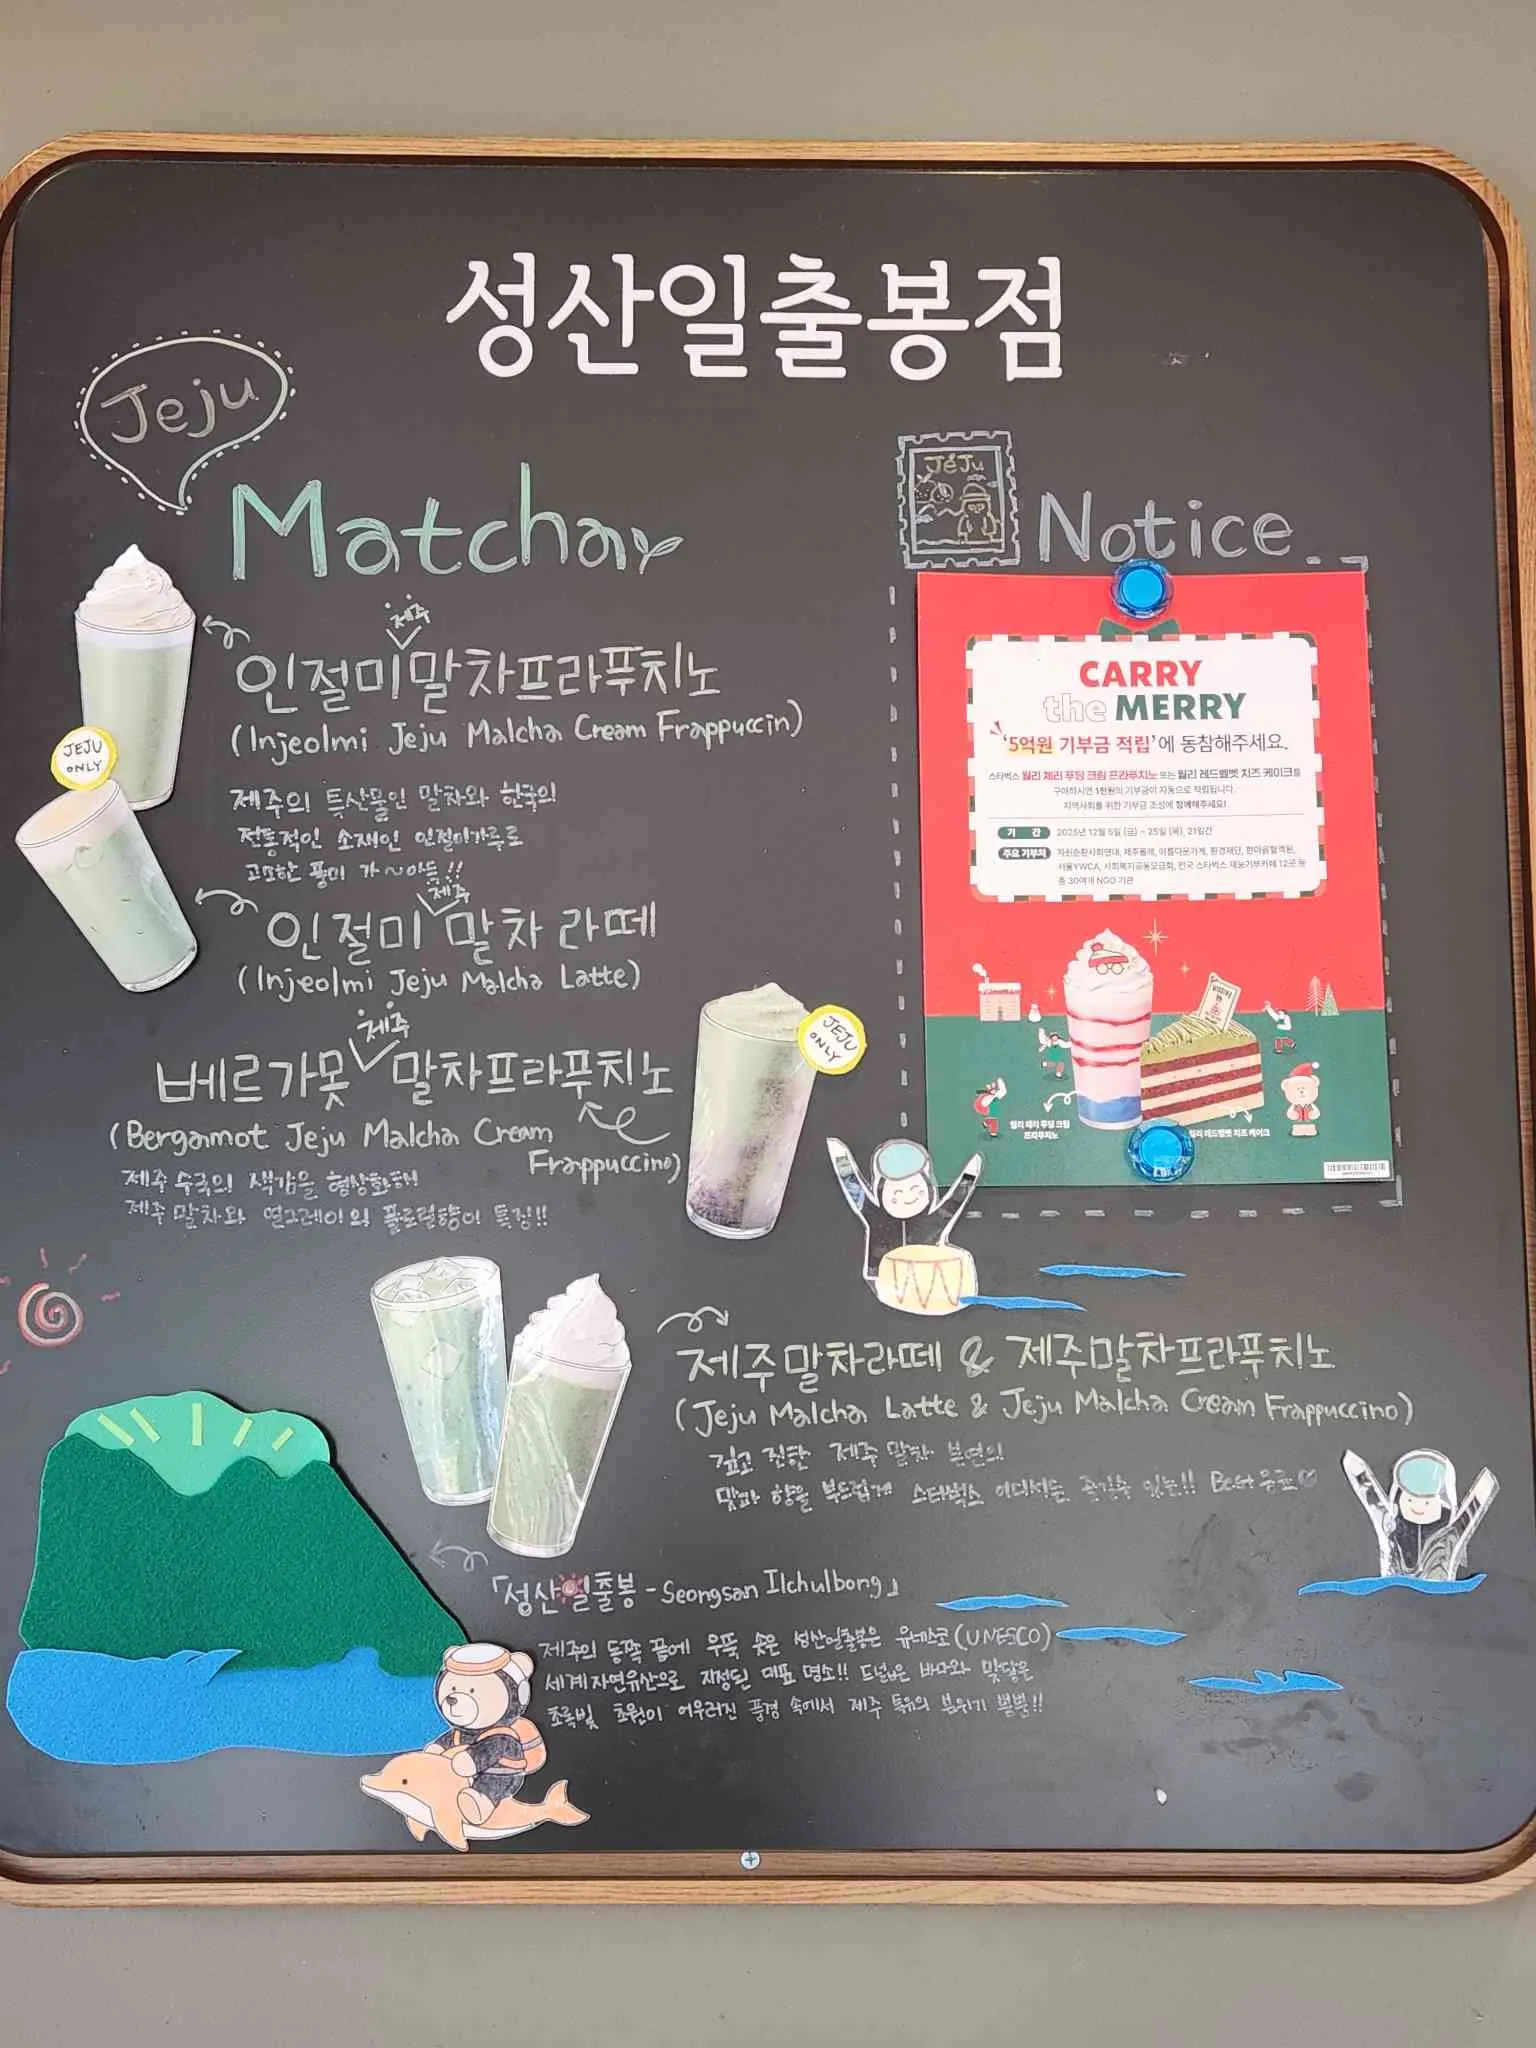 성산일출봉점
Jeju
Matcha
제주
인절미말차프라푸치노
(Injeolmi Jeju Malcha Cream Frappuccin)
JEJU
ONLY
제주의 특산물인 말차와 한국의
전통적인 소재인 인절미가루로
고소한 풍미 가~아득!!
제주
인절미 말차 라떼
(Injeolmi Jeju Malcha Latte)
제주
베르가못 말차프라푸치노
(Bergamot Jeju Malcha Cream
Frappuccino)
JEJU
ONLY
제주 수국의 색감을 형상화해
제주 말차와 얼그레이의 플로럴향이 특징!!
제주말차라떼 & 제주말차프라푸치노
(Jeju Malcha Latte & Jeju Malcha Cream Frappuccino)
깊고 진한 제주 말차 본연의
맛과 향을 부드럽게 스타벅스 어디서든 즐길수 있는!! Best 음료♡
「성산일출봉 - Seongsan Ilchulbong」
제주의 동쪽 끝에 우뚝 솟은 성산일출봉은 유네스코(UNESCO)
세계자연유산으로 지정된 대표 명소!! 드넓은 바다와 맞닿은
초록빛 초원이 어우러진 풍경 속에서 제주 특유의 분위기 뿜뿜!!
JeJu
Notice
CARRY
the MERRY
'5억원 기부금 적립'에 동참해주세요.
스타벅스 월리 체리 푸딩 크림 프라푸치노 또는 월리 레드벨벳 치즈 케이크를
구매하시면 1천원의 기부금이 자동으로 적립됩니다.
지역사회를 위한 기부금 조성에 함께해주세요!
기 간 2025년 12월 5일 (금) ~ 25일 (목), 21일간
주요 기부처 자원순환사회연대, 제주올레, 아름다운가게, 환경재단, 한마음혈액원,
서울YWCA, 사회복지공동모금회, 전국 스타벅스 재능기부카페 12곳 등
총 30여개 NGO 기관
월리 체리 푸딩 크림
프라푸치노
월리 레드벨벳 치즈 케이크